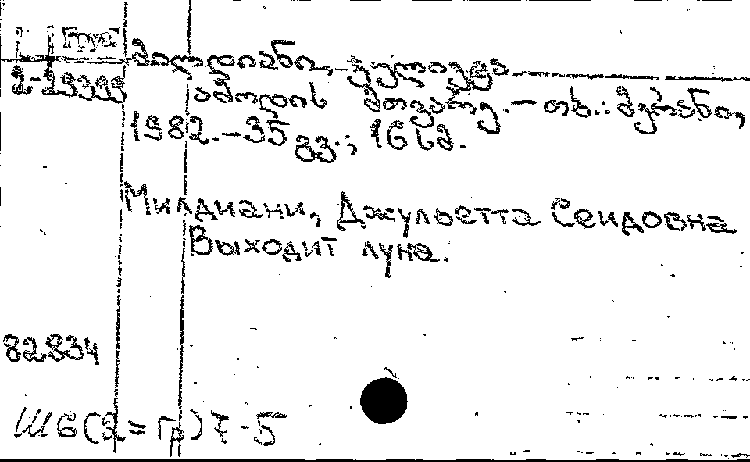 Груз
2-23323
მილდიანი, ჯულიეტა
ამოდის მთვარე.-თბ.: მერანი,
1982.-35 გვ.; 16 სმ.
Милдиани, Джульетта Сеидовна
Выходит луна.
82834
Ш6(2=Гр)7-5